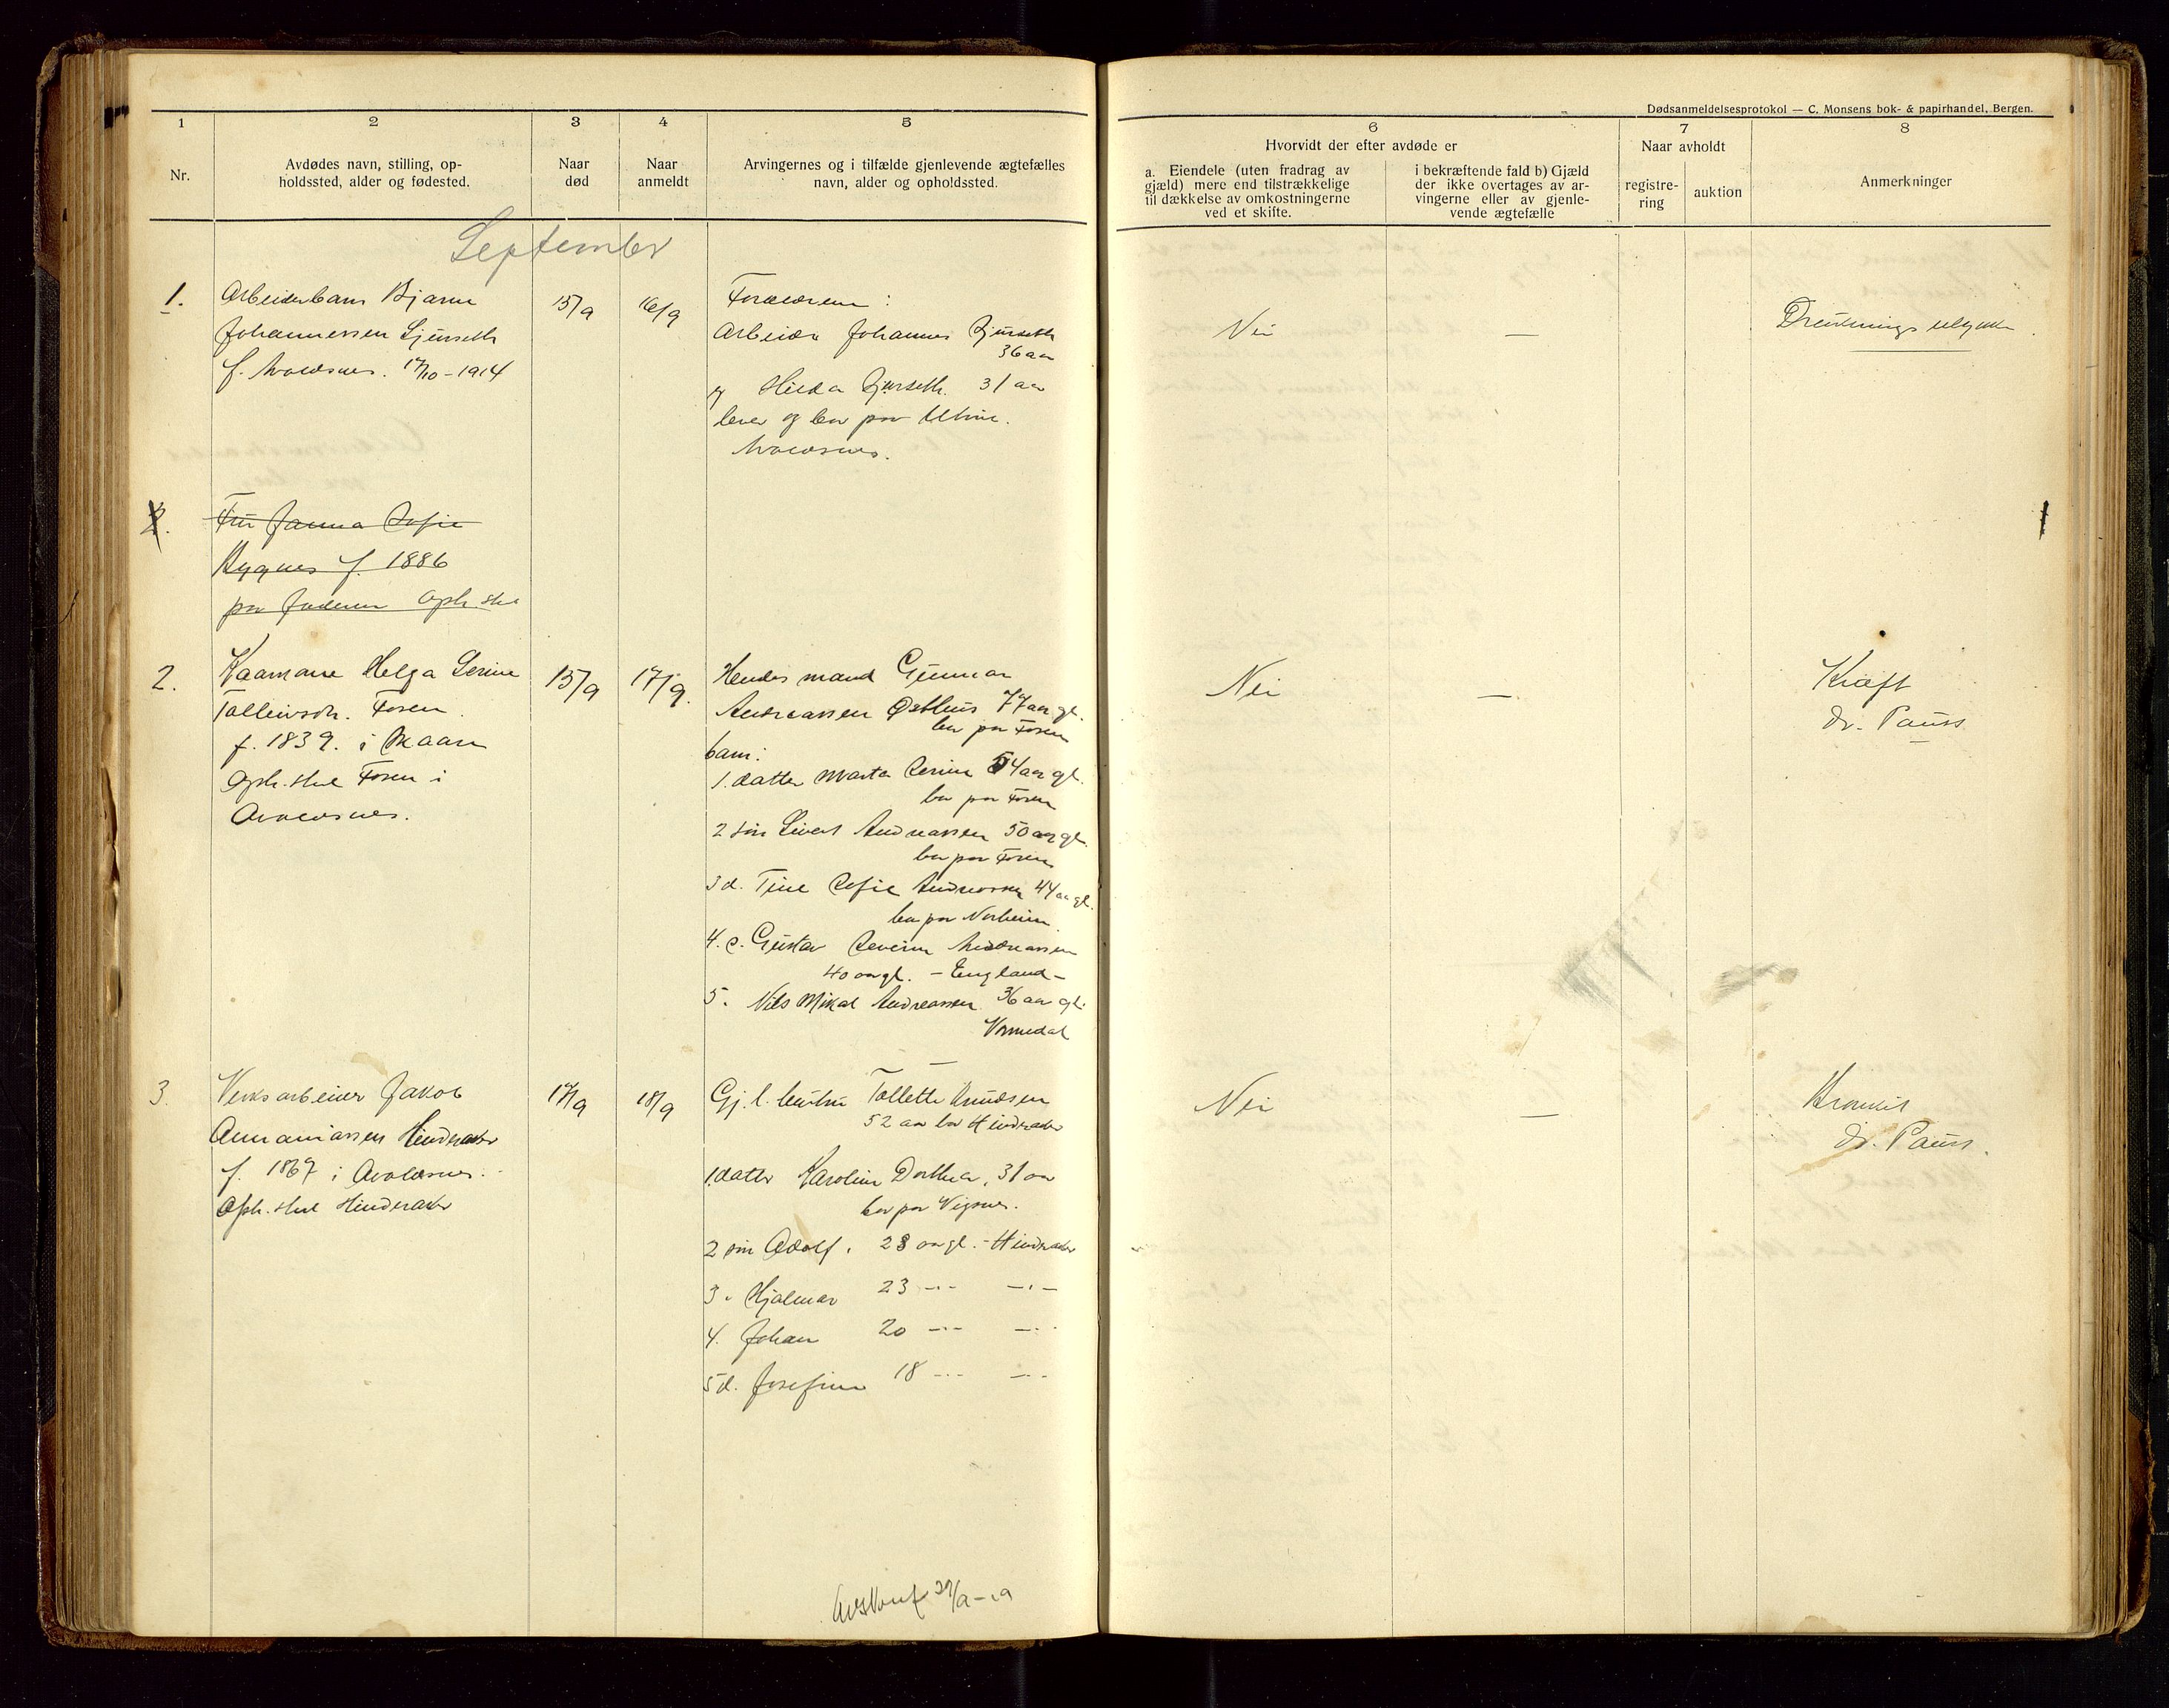 Dødsanmeldelsesprotokol — C. Monsens bok- & papirhandel, Bergen.
1 2 3 4 5 6 7 8
Nr.
Avdødes navn, stilling, op-
holdssted, alder og fødested.
Naar
død
Naar
anmeldt
Arvingernes og i tilfælde gjenlevende ægtefælles
navn, alder og opholdssted.
Hvorvidt der efter avdøde er
a. Eiendele (uten fradrag av
gjæld) mere end tilstrækkelige
til dækkelse av omkostningerne
ved et skifte.
i bekræftende fald b) Gjæld
der ikke overtages av ar-
vingerne eller av gjenle-
vende ægtefælle
Naar avholdt
registre-
ring
auktion
Anmerkninger
September
1.
Arbeiderbarn Bjarne
Johannessen
f. Avaldsnes. 17/10 - 1914
15/9
16/9
Forældrene:
Arbeider Johannes
36 aar
og Hilda 31 aar
lever og bor paa
Avaldsnes.
Nei
—
Drukningsulykke
2.
Fru Janna Sofie
Hygnes f. 1886
paa Jæderen Oph. sted
2.
Kaarmone Helga Serine
Tolleivsdr. Fosen
f. 1839. i Skaare
Oph. sted Fosen i
Avaldsnes.
15/9
17/9.
Hendes mand Gunnar
Andreassen Østhus 77 aar gl.
bor paa Fosen
barn:
1. datter Marta Serine 54 aar gl.
bor paa Fosen
2 søn Sivert Andreassen 50 aar gl.
bor paa Fosen
3 d. Tine Sofie Andreassen 44 aar gl.
bor paa Norheim
4. s. Gustav Severin Andreassen
40 aar gl. - England -
5. Nils Mikal Andreassen 36 aar gl.
Vormedal
Nei
—
Kræft
Dr. Pauss
3.
Verksarbeider Jakob
Annaniassen Hinderaker
f. 1867 i Avaldsnes.
Oph. sted Hinderaker
17/9
18/9
Gj. l. hustru Tollette Knudsen
52 aar bor Hinderaker
1. datter Karoline Dorthea, 31 aar
bor paa Vigsnes.
2 søn Adolf. 28 aar gl. - Hinderaker
3 " Hjalmar 23 -"- -"-
4. Johan 20 -"- -"-
5 d. Josefine 18 -"- -"-
Nei
—
Bronkit
dr. Pauss.
Avskrift 29/9 - 19